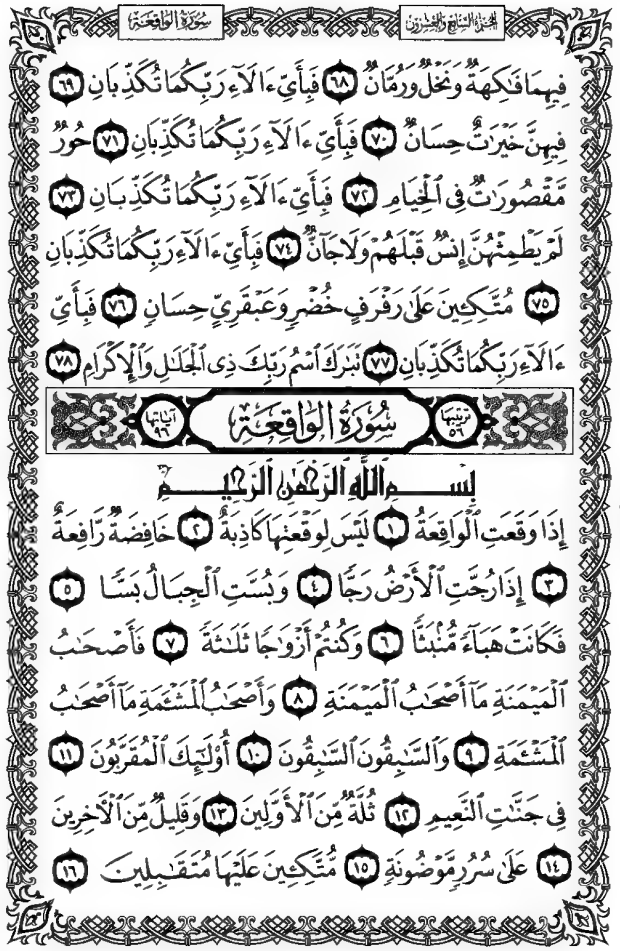 الجزء السابع والعشرون
سورة الواقعة
فِيهِمَا فَٰكِهَةٌ وَنَخْلٌ وَرُمَّانٌ ٦٨ فَبِأَيِّ ءَالَآءِ رَبِّكُمَا تُكَذِّبَانِ ٦٩
فِيهِنَّ خَيْرَٰتٌ حِسَانٌ ٧٠ فَبِأَيِّ ءَالَآءِ رَبِّكُمَا تُكَذِّبَانِ ٧١ حُورٌ
مَّقْصُورَٰتٌ فِي الْخِيَامِ ٧٢ فَبِأَيِّ ءَالَآءِ رَبِّكُمَا تُكَذِّبَانِ ٧٣
لَمْ يَطْمِثْهُنَّ إِنسٌ قَبْلَهُمْ وَلَا جَآنٌّ ٧٤ فَبِأَيِّ ءَالَآءِ رَبِّكُمَا تُكَذِّبَانِ
٧٥ مُتَّكِـِٔينَ عَلَىٰ رَفْرَفٍ خُضْرٍ وَعَبْقَرِيٍّ حِسَانٍ ٧٦ فَبِأَيِّ
ءَالَآءِ رَبِّكُمَا تُكَذِّبَانِ ٧٧ تَبَٰرَكَ اسْمُ رَبِّكَ ذِي الْجَلَٰلِ وَالْإِكْرَامِ ٧٨
ترتيبها ٥٦ سُورَةُ الوَاقِعَةِ آياتها ٩٦
بِسْمِ اللَّهِ الرَّحْمَٰنِ الرَّحِيمِ
إِذَا وَقَعَتِ الْوَاقِعَةُ ١ لَيْسَ لِوَقْعَتِهَا كَاذِبَةٌ ٢ خَافِضَةٌ رَّافِعَةٌ
٣ إِذَا رُجَّتِ الْأَرْضُ رَجًّا ٤ وَبُسَّتِ الْجِبَالُ بَسًّا ٥
فَكَانَتْ هَبَآءً مُّنۢبَثًّا ٦ وَكُنتُمْ أَزْوَٰجًا ثَلَٰثَةً ٧ فَأَصْحَٰبُ
الْمَيْمَنَةِ مَآ أَصْحَٰبُ الْمَيْمَنَةِ ٨ وَأَصْحَٰبُ الْمَشْـَٔمَةِ مَآ أَصْحَٰبُ
الْمَشْـَٔمَةِ ٩ وَالسَّٰبِقُونَ السَّٰبِقُونَ ١٠ أُو۟لَٰٓئِكَ الْمُقَرَّبُونَ ١١
فِي جَنَّٰتِ النَّعِيمِ ١٢ ثُلَّةٌ مِّنَ الْأَوَّلِينَ ١٣ وَقَلِيلٌ مِّنَ الْـَٔاخِرِينَ
١٤ عَلَىٰ سُرُرٍ مَّوْضُونَةٍ ١٥ مُّتَّكِـِٔينَ عَلَيْهَا مُتَقَٰبِلِينَ ١٦